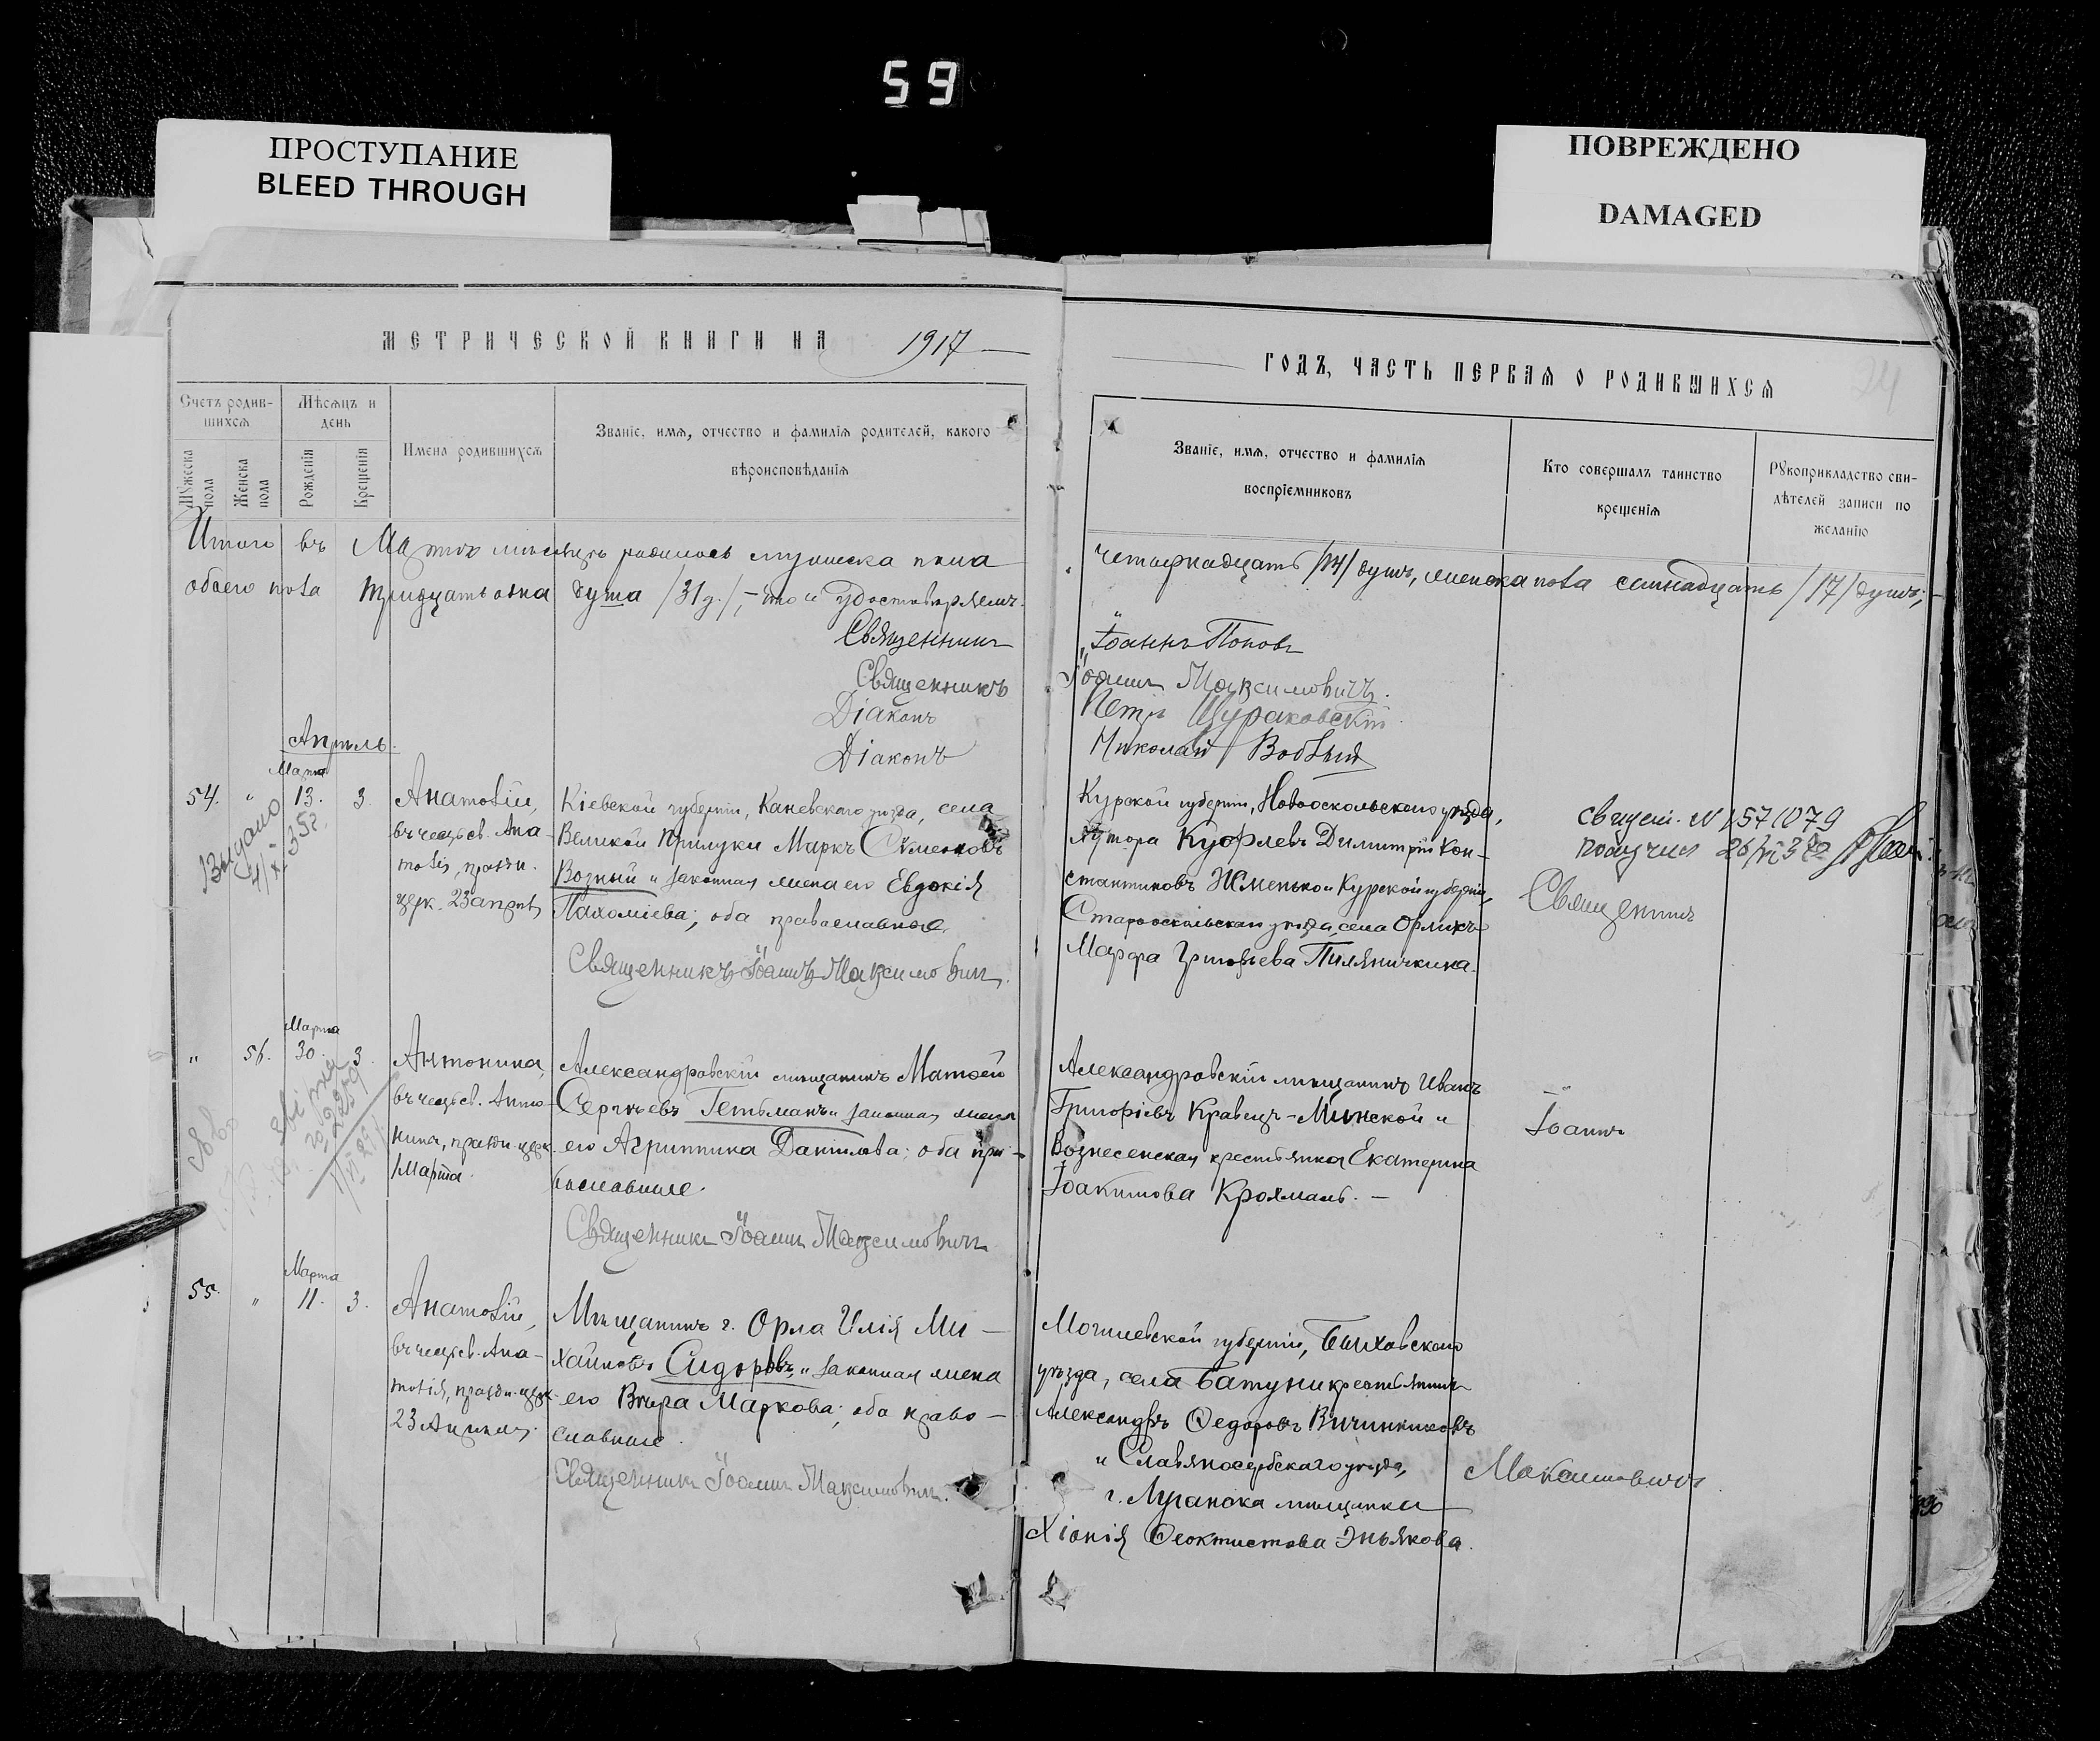 59
ПРОСТУПАНИЕ
BLEED THROUGH
ПОВРЕЖДЕНО
DAMAGED
МЕТРИЧЕСКОЙ КНИГИ НА 1917
Счетъ родив-
шихся
Мѣсяцъ и
день
Мужеска
пола
Женска
пола
Рожденія
Крещенія
Имена родившихся
Званіе, имя, отчество и фамилія родителей, какого
вѣроисповѣданія
Итого въ Мартѣ мѣсяцѣ родилось мужеска пола
обоего пола тридцать одна душа /31 д./, – что и удостовѣряемъ.
Священникъ
Священникъ
Діаконъ
Діаконъ
Апрѣль.
Марта
54. " 13. 3
Выдано
4/X 35 г.
Анатолій,
въ честь св. Ана-
толія, праздн.
церк. 23 апрѣля
Кіевской губерніи, Каневскаго уѣзда, села
Великой Прилуки Маркъ Сѵмеоновъ
Возный и законная жена его Евдокія
Пахоміева; оба православные.
Священникъ Іоаннъ Максимовичъ.
Марта
" 56. 30. 3.
Антонина,
въ честь св. Анто-
нины, праздн. церк.
1 Марта.
Александровскій мѣщанинъ Матѳей
Сергѣевъ Гетьманъ и законная жена
его Агриппина Данилова; оба пра-
вославные.
Священникъ Іоаннъ Максимовичъ
Марта
55. " 11. 3.
Анатолій,
въ честь св. Ана-
толія, праздн. церк.
23 Апрѣля.
Мѣщанинъ г. Орла Илія Ми-
хайловъ Сидоровъ, и законная жена
его Вѣра Маркова; оба право-
славные.
Священникъ Іоаннъ Максимовичъ.
ГОДЪ, ЧАСТЬ ПЕРВАЯ О РОДИВШИХСЯ
24
Званіе, имя, отчество и фамилія
воспріемниковъ
Кто совершалъ таинство
крещенія
Рукоприкладство сви-
дѣтелей записи по
желанію
четырнадцать /14/ душъ, женска пола семнадцать /17/ душъ;
Іоаннъ Поповъ
Іоаннъ Максимовичъ.
Петръ Щураковскій.
Николай
Курской губерніи, Новооскольскаго уѣзда,
хутора Димитрій Кон-
стантиновъ Жменько и Курской губерніи,
Старооскольскаго уѣзда, села Орликъ
Марфа Григорьева
№ 1571079
получил 26/VI
Священникъ
Александровскій мѣщанинъ Иванъ
Григоріевъ Кравецъ-Минской и
Вознесенская крестьянка Екатерина
Іоакимова Крохмаль. –
Іоаннъ
Могилевской губерніи, Быховскаго
уѣзда, села Батуни крестьянинъ
Александръ Ѳедоровъ
и Славяносербскаго уѣзда,
г. Луганска мѣщанка
Хіонія Ѳеоктистова
Максимовичъ.